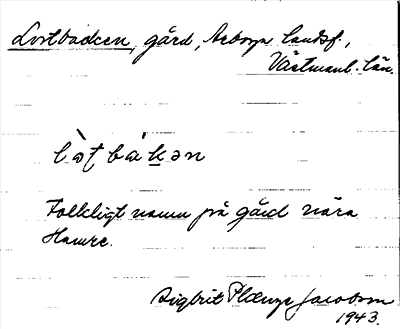 Lortbacken, gård, Arboga landsf.,
Västmanl. län.
Folkligt namn på gård nära
Hamre.
Sigbrit Plænge Jacobson
1943.